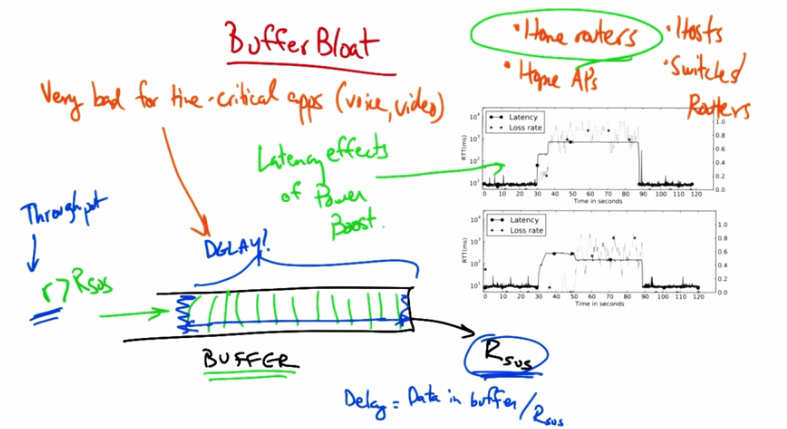 BufferBloat
• Home routers
• Hosts
• Home APs
• Switches/
Routers
Very bad for time-critical apps (voice, video)
Latency effects
of Power
Boost.
Throughput
DELAY!
r > Rsus
BUFFER
Rsus
Delay = Data in buffer/Rsus
Latency
Loss rate
RTT(ms)
10⁴
10³
10²
10¹
1.0
0.8
0.6
0.4
0.2
0.0
0 10 20 30 40 50 60 70 80 90 100 110 120
Time in seconds
Latency
Loss rate
RTT(ms)
10⁴
10³
10²
10¹
1.0
0.8
0.6
0.4
0.2
0.0
0 10 20 30 40 50 60 70 80 90 100 110 120
Time in seconds